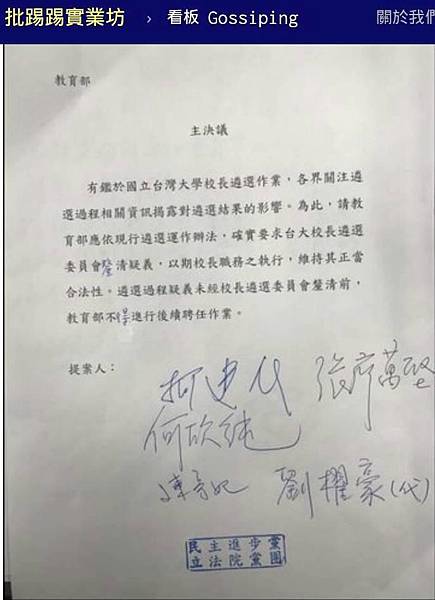 批踢踢實業坊 › 看板 Gossiping 關於我們
教育部
主決議
有鑑於國立台灣大學校長遴選作業，各界關注遴
選過程相關資訊揭露對遴選結果的影響。為此，請教
育部應依現行遴選運作辦法，確實要求台大校長遴選
委員會釐清疑義，以期校長職務之執行，維持其正當
合法性。遴選過程疑義未經校長遴選委員會釐清前，
教育部不得進行後續聘任作業。
提案人：
柯建銘 張廖萬堅
何欣純
陳亭妃 劉櫂豪(代)
民主進步黨
立法院黨團